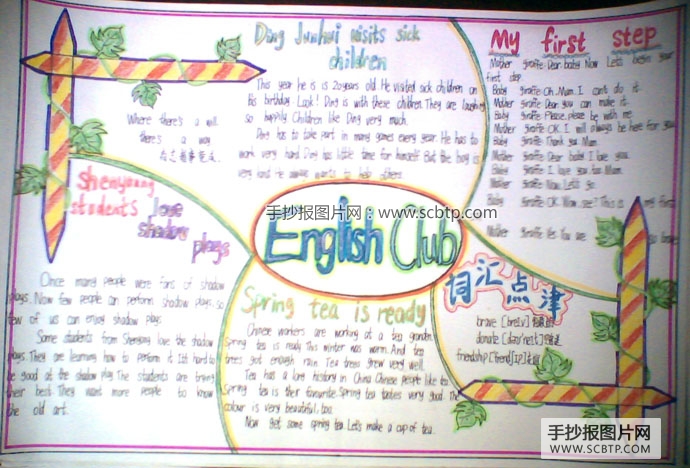 Ding Junhui visits sick
children
This year he is is 20 years old. He visited sick children on
his birthday. Look! Ding is with these children. They are laughing
so happily. Children like Ding very much.
Ding has to take part in many games every year. He has to
work very hard. Ding has little time for himself. But the boy is
very kind. He always wants to help others.
Where there's a will
there's a way
有志者事竟成
My first step
Mother giraffe: Dear baby. Now Let's begin your
first step.
Baby giraffe: Oh, Mum. I can't do it.
Mother giraffe: Dear you can make it.
Baby giraffe: Please, please be with me.
Mother giraffe: OK. I will always be here for you.
Baby giraffe: Thank you Mum.
Mother giraffe: Dear baby. I love you.
Baby giraffe: I love you too Mum.
Mother giraffe: Now. Let's go.
Baby giraffe: OK Mum. see? This is my first
Mother giraffe: Yes You are
Shenyang
students love
shadow
plays
Once many people were fans of shadow
plays. Now few people can perform shadow plays, so
few of us can enjoy shadow plays.
Some students from Shenyang love the shadow
plays. They are learning how to perform it. It's hard to
be good at the shadow play. The students are trying
their best. They want more people to know
the old art.
手抄报图片网：www.scbtp.com
English Club
Spring tea is ready
Chinese workers are working at a tea garden.
Spring tea is ready. This winter was warm. And tea
trees got enough rain. Tea trees grew very well.
Tea has a long history in China. Chinese people like tea.
Spring tea is their favourite. Spring tea tastes very good. The
colour is very beautiful, too.
Now get some spring tea. Let's make a cup of tea.
词汇点津
brave [breiv]
donate [dəu'neit]
friendship ['frendʃip]
手抄报图片网
WWW.SCBTP.COM